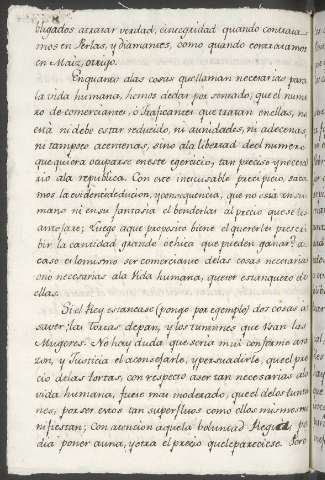 bligados atratar verdad, è integridad quando contrata-
mos en Perlas, y diamantes, como quando contratamos
en Maiz, o trigo.
En quanto alas cosas que llaman necesarias para
la vida humana, hemos dedar por sentado, que el nume
ro de comerciantes, ò Traficantes que tratan en ellas, no
està ni debe estar reducido, ni à unidades, ni a decenas,
ni tampoco acentenas, sino ala libertad de el numero
que quiera ocuparse en este egercicio, tan preciso y neces
rio ala republica. Con este inescusable principio, saca
mos la evidente deducion, y consequencia, que no està en su
mano ni en su fantasia el benderlas al precio que se les
antojare; Luego aque proposito biene el quererles prescri
bir la cantidad grande ò chica que pueden ganar? a-
caso es lo mismo ser comerciante de las cosas necesarias
ò no necesarias ala Vida humana, que ser estanquero de
ellas.
Si el Rey estancase (pongo por exemplo) dos cosas à
saver; las Tortas de pan, y los que Usan las
Mugeres. No hay duda que seria mui conforme a ra
zon, y Justicia el aconsejarle, y persuadirle, que el pre
cio de las tortas, con respecto a ser tan necesarias ala
vida humana, fuese mas moderado, que el de los
por ser estos tan superfluos como ellos mismos ma
nifiestan; Con atencion a que la boluntad Regia, po
dia poner a una, y otra el precio que le pareciese. Pero